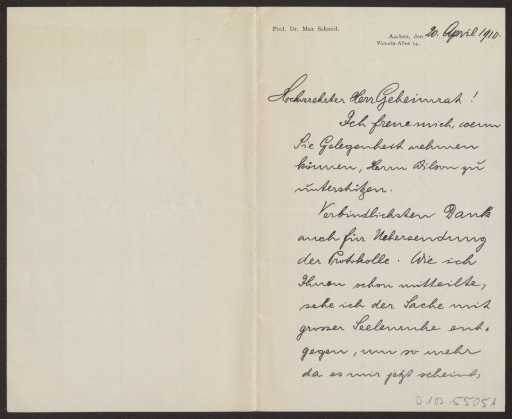 Prof. Dr. Max Schmid.
Aachen, den 20. April 1910.
Victoria-Allee 14.
Hochverehrter Herr Geheimrat!
Ich freue mich, wenn
Sie Gelegenheit nehmen
können, Herrn Wilson zu
unterstützen.
Verbindlichsten Dank
auch für Uebersendung
der Protokolle. Wie ich
Ihnen schon mitteilte,
sehe ich der Sache mit
grosser Seelenruhe ent-
gegen, um so mehr
da es mir jetzt scheint,
D 102 5505A